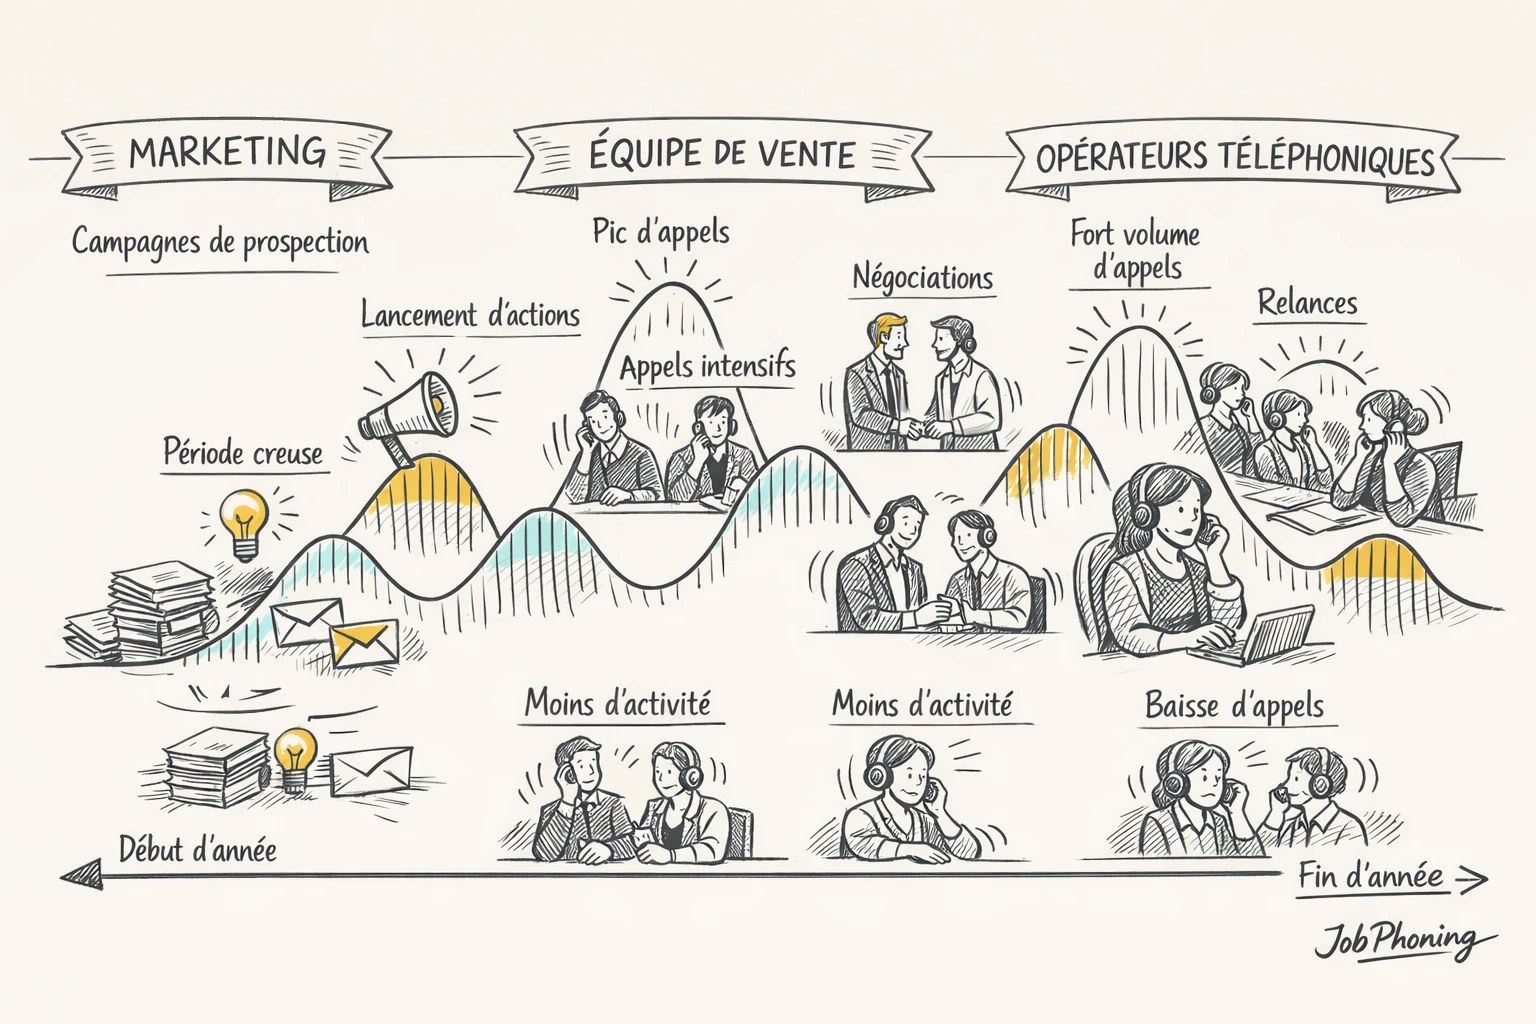 MARKETING
ÉQUIPE DE VENTE
OPÉRATEURS TÉLÉPHONIQUES
Campagnes de prospection
Lancement d'actions
Période creuse
Pic d'appels
Appels intensifs
Négociations
Fort volume
d'appels
Relances
Moins d'activité
Moins d'activité
Baisse d'appels
Début d'année
Fin d'année
JobPhoning